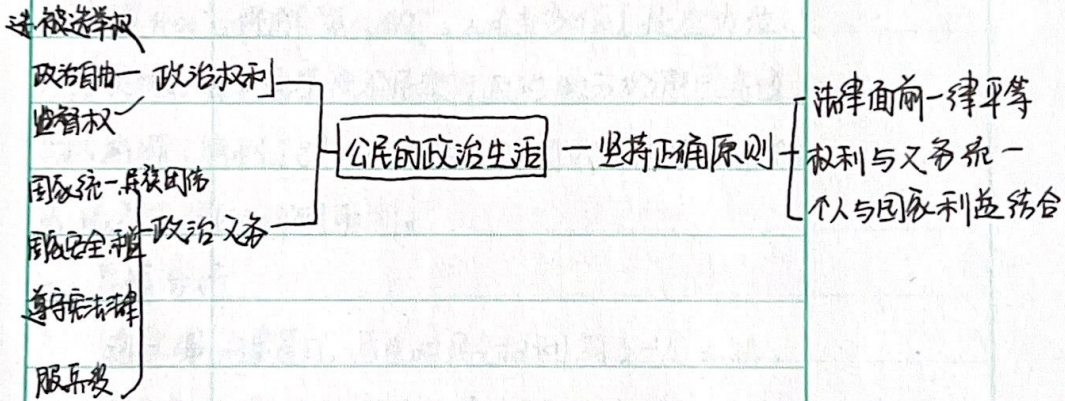 选被选举权
政治自由
监督权
政治权利
国家统一民族团结
国家安全利益
遵守宪法法律
服兵役
政治义务
公民的政治生活
坚持正确原则
法律面前一律平等
权利与义务统一
个人与国家利益结合